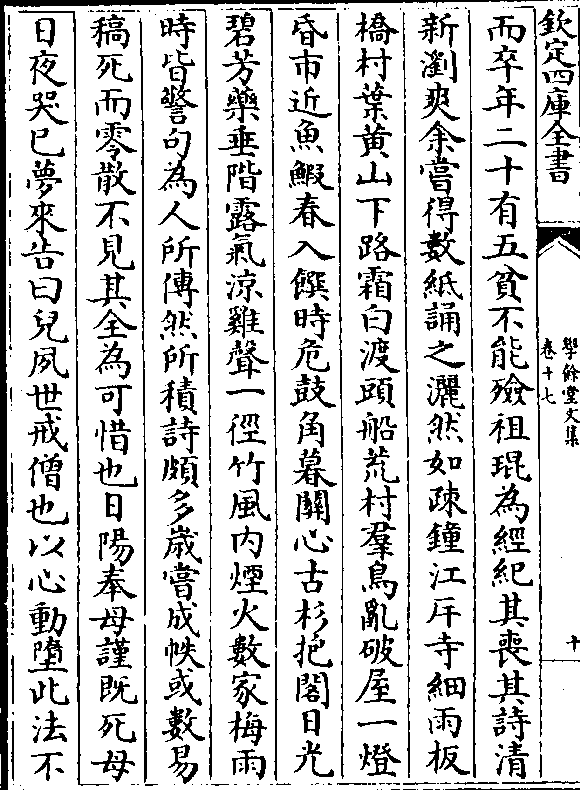 欽定四庫全書
學餘堂文集
卷十七
十
而卒年二十有五貧不能殮祖琨為經紀其喪其詩清
新瀏爽余嘗得數紙誦之灑然如疎鐘江岸寺細雨板
橋村葉黃山下路霜白渡頭船荒村羣鳥亂破屋一燈
昏市近魚鰕春入饌時危鼓角暮關心古杉挹閣日光
碧芳藥垂階露氣涼雞聲一徑竹風内煙火數家梅雨
時皆警句為人所傳然所積詩頗多歲嘗成帙或數易
稿死而零散不見其全為可惜也日陽奉母謹既死母
日夜哭已夢來告曰兒夙世戒僧也以心動墮此法不